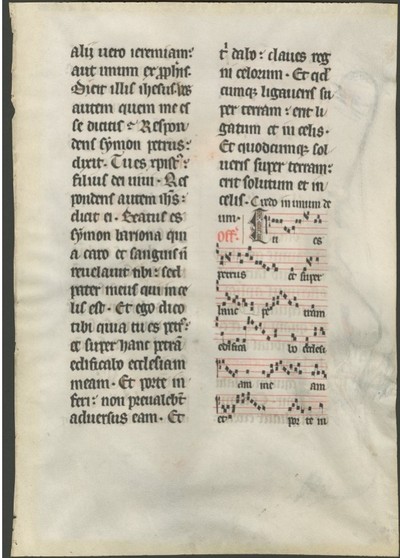 alij uero ieremiam:
aut unum ex ꝓphis.
Dicit illis ihesus. vos
autem quem me es
se dicitis : Respon
dens symon petrus:
dixit. Tu es xpist᷒:
filius dei uiui. Res
pondens autem ih̅s:
dixit ei. Beatus es
symon bariona qui
a caro et sanguis n̅
reuelauit tibi: sed
pater meus qui in ce
lis est. Et ego dico
tibi quia tu es petr᷒:
et super hanc petrā
edificabo ecclesiam
meam. Et porte in
feri: non preualebt̅
aduersus eam. Et
t̅ dabo: claues reg
ni celorum. Et qd̅
cumqꝫ ligaueris su
per terram: erit li
gatum et in celis.
Et quodcumqꝫ sol
ueris super terram:
erit solutum et in
celis. Credo in unum de
um.
Off̅. Tu es
petrus et super
hanc pe tram
edifica bo ecclesi
am me am
et por te in